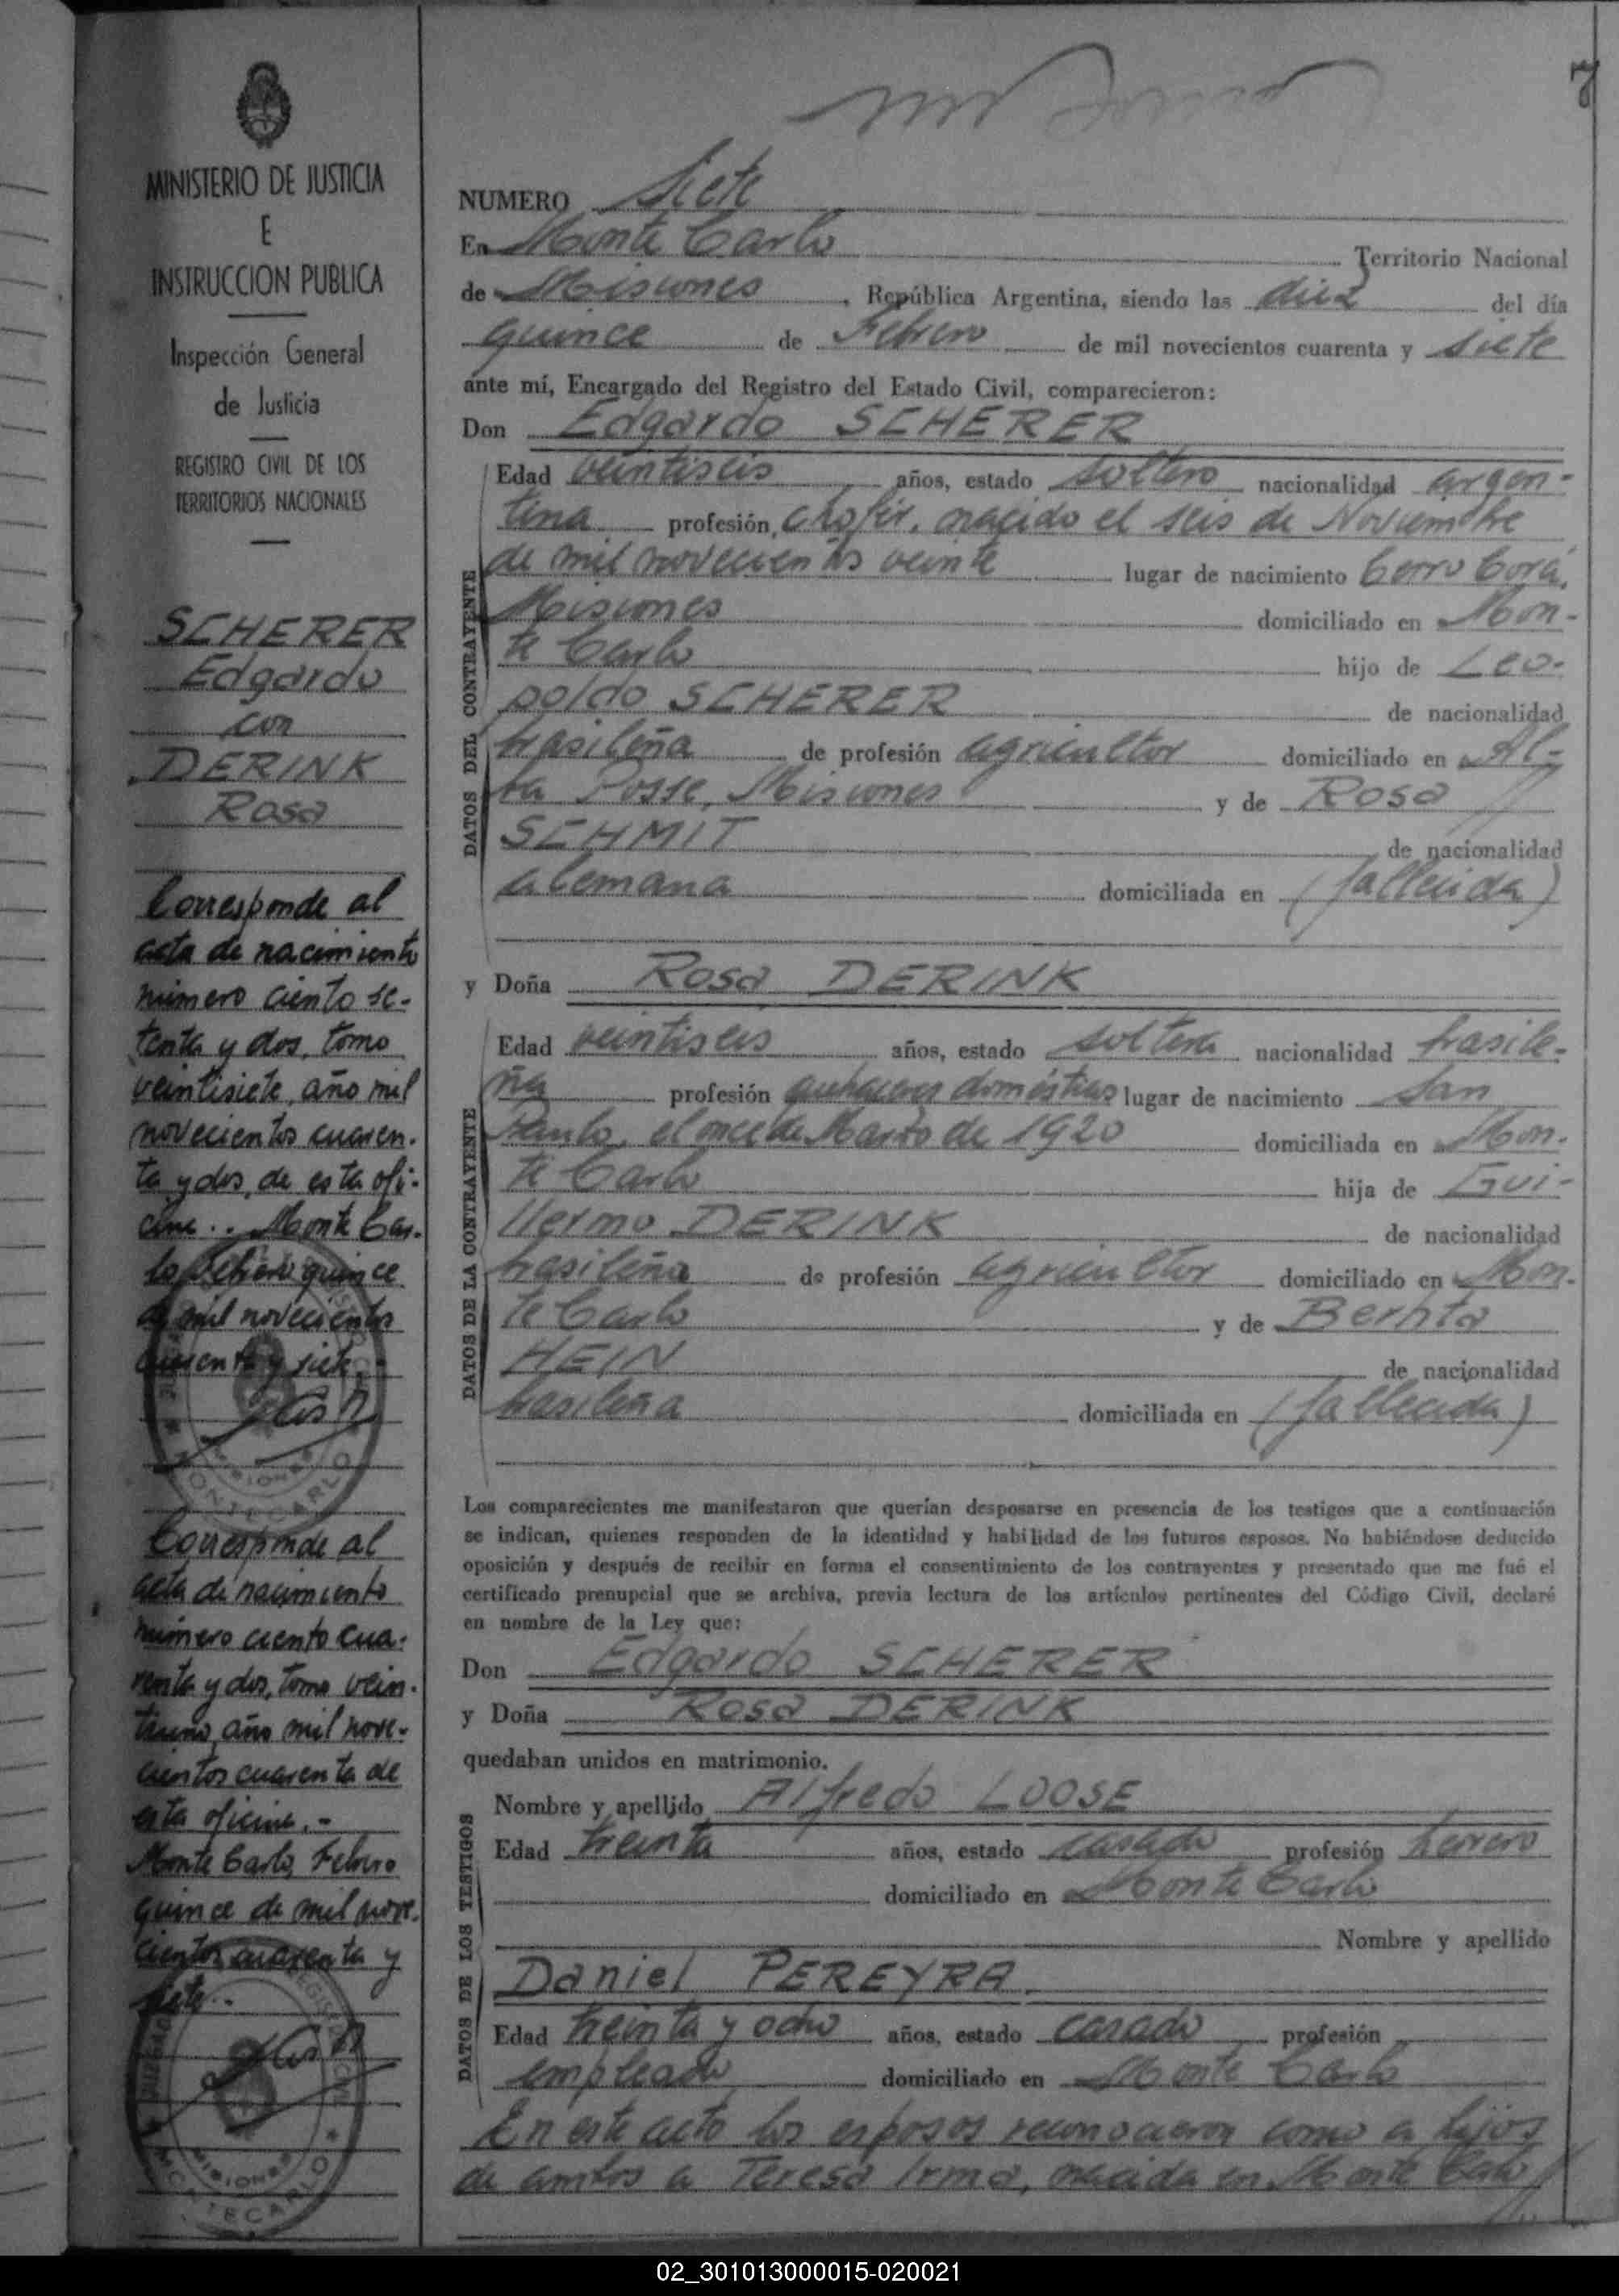 7
MINISTERIO DE JUSTICIA
E
INSTRUCCION PUBLICA
Inspección General
de Justicia
REGISTRO CIVIL DE LOS
TERRITORIOS NACIONALES
SCHERER
Edgardo
con
DERINK
Rosa
Corresponde al
acta de nacimiento
número ciento se-
tenta y dos, tomo
veintisiete, año mil
novecientos cuaren-
ta y dos, de esta ofi-
cina.- Monte Car-
lo Febrero quince
de mil novecientos
cuarenta y siete.-
MISIONES
MONTECARLO
Corresponde al
acta de nacimiento
número ciento cua-
renta y dos, tomo vein-
tiuno, año mil nove-
cientos cuarenta de
esta oficina.-
Monte Carlo, Febrero
quince de mil nove-
cientos cuarenta y
siete.-
MISIONES
MONTECARLO
NUMERO Siete
En Monte Carlo Territorio Nacional
de Misiones, República Argentina, siendo las diez del día
quince de Febrero de mil novecientos cuarenta y siete
ante mí, Encargado del Registro del Estado Civil, comparecieron:
Don Edgardo SCHERER
DATOS DEL CONTRAYENTE
Edad veintiseis años, estado soltero nacionalidad argen-
tina profesión, chofer, nacido el seis de Noviembre
de mil novecientos veinte lugar de nacimiento Cerro Corá,
Misiones domiciliado en Mon-
te Carlo hijo de Leo-
poldo SCHERER de nacionalidad
brasileña de profesión agricultor domiciliado en Al-
ba Posse, Misiones y de Rosa
SCHMIT de nacionalidad
alemana domiciliada en (fallecida)
y Doña Rosa DERINK
DATOS DE LA CONTRAYENTE
Edad veintiseis años, estado soltera nacionalidad brasile-
ña profesión quehaceres domésticos lugar de nacimiento San
Paulo, el once de Marzo de 1920 domiciliada en Mon-
te Carlo hija de Gui-
llermo DERINK de nacionalidad
brasileña de profesión agricultor domiciliado en Mon-
te Carlo y de Berhta
HEIN de nacionalidad
brasileña domiciliada en (fallecida)
Los comparecientes me manifestaron que querían desposarse en presencia de los testigos que a continuación
se indican, quienes responden de la identidad y habilidad de los futuros esposos. No habiéndose deducido
oposición y después de recibir en forma el consentimiento de los contrayentes y presentado que me fué el
certificado prenupcial que se archiva, previa lectura de los artículos pertinentes del Código Civil, declaré
en nombre de la Ley que:
Don Edgardo SCHERER
y Doña Rosa DERINK
quedaban unidos en matrimonio.
DATOS DE LOS TESTIGOS
Nombre y apellido Alfredo LOOSE
Edad treinta años, estado casado profesión herrero
domiciliado en Monte Carlo
Nombre y apellido
Daniel PEREYRA
Edad treinta y ocho años, estado casado profesión
empleado domiciliado en Monte Carlo
En este acto los esposos reconocieron como a hijos
de ambos a Teresa Irma, nacida en Monte Carlo
02_301013000015-020021